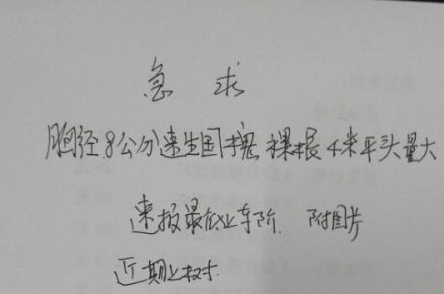 急求
胸径8公分速生国槐 裸根 4米平头量大
速报最低上车价. 附图片
近期上树.